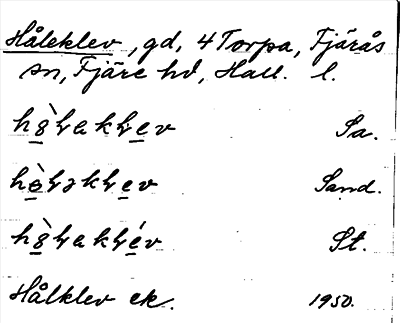 Håleklev, gd, 4 Torpa, Fjärås
sn, Fjäre hd, Hall. l.
hòⱨakⱨev Sa.
hòⱨəkⱨev Sand.
hòⱨakⱨév St.
Hålklev ek. 1950.